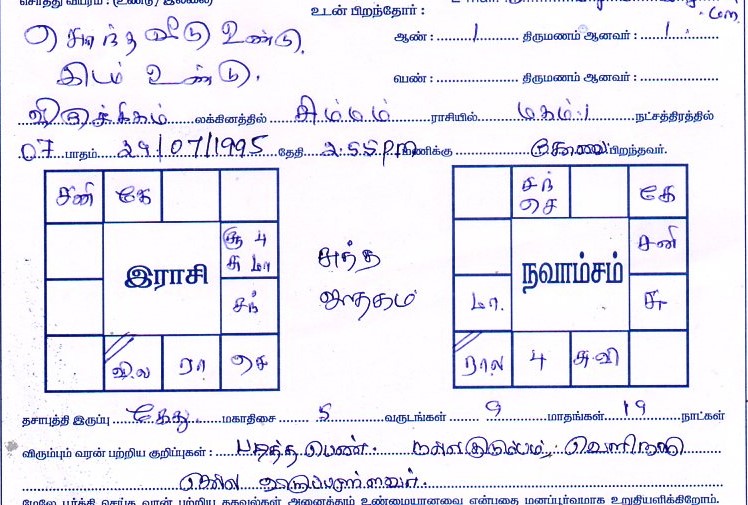 சொத்து விபரம் : (உண்டு / இல்லை)
.com
உடன் பிறந்தோர் :
1) சொந்த வீடு உண்டு.
ஆண் : 1 திருமணம் ஆனவர் : 1.
இடம் உண்டு.
பெண் : திருமணம் ஆனவர் :
விருச்சிகம் லக்கினத்தில் சிம்மம் ராசியில் மகம்.1 நட்சத்திரத்தில்
07 பாதம் 29/07/1995 தேதி 2.55 pm மணிக்கு பிறந்தவர்.
சனி கே
சூ பு
சு மா
இராசி
சந்
வி.ல ரா செ
ஜாதகம்
சந்
செ கே
சனி
நவாம்சம்
மா. சூ
ரால பு சு வி
தசாபுத்தி இருப்பு கேது மகாதிசை 5 வருடங்கள் 9 மாதங்கள் 19 நாட்கள்
விரும்பும் வரன் பற்றிய குறிப்புகள் : படித்த பெண். நல்ல குடும்பம்,
மேலே பூர்த்தி செய்த வரன் பற்றிய தகவல்கள் அனைத்தும் உண்மையானவை என்பதை மனப்பூர்வமாக உறுதியளிக்கிறோம்.